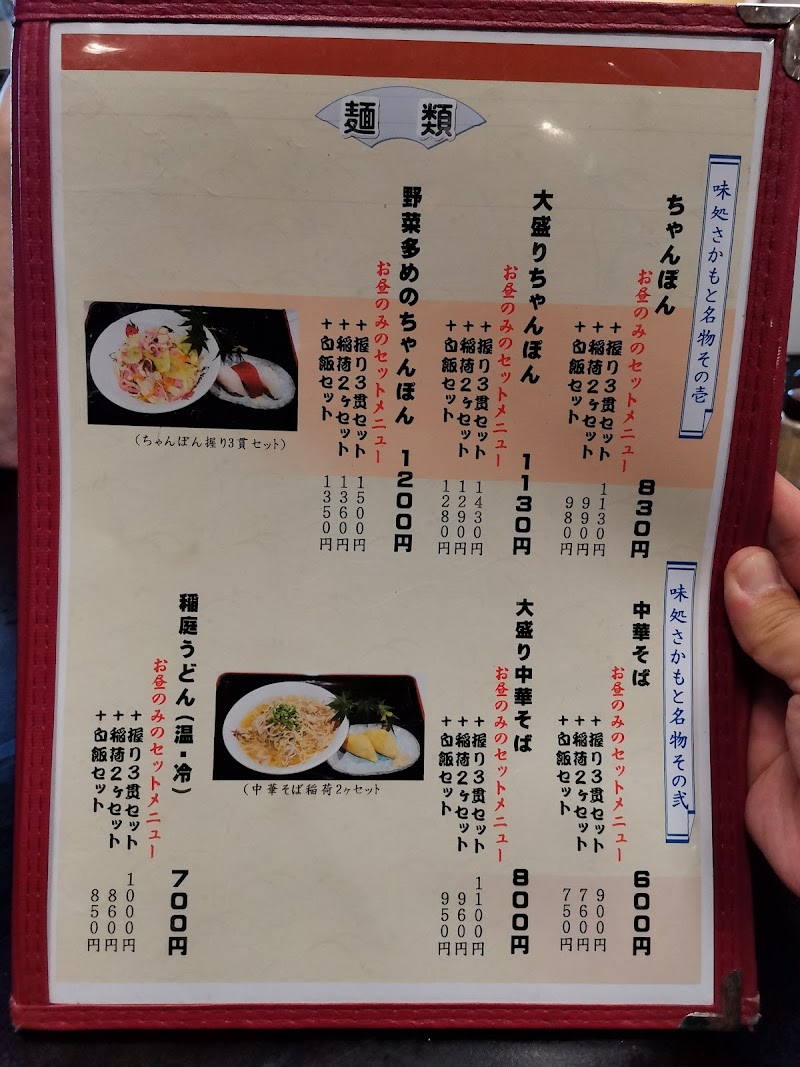 麺類
味処さかもと名物その壱
ちゃんぽん 830円
お昼のみのセットメニュー
+握り3貫セット 1130円
+稲荷2ヶセット 990円
+白飯セット 980円
大盛りちゃんぽん 1130円
お昼のみのセットメニュー
+握り3貫セット 1430円
+稲荷2ヶセット 1290円
+白飯セット 1280円
野菜多めのちゃんぽん 1200円
お昼のみのセットメニュー
+握り3貫セット 1500円
+稲荷2ヶセット 1360円
+白飯セット 1350円
(ちゃんぽん握り3貫セット)
味処さかもと名物その弐
中華そば 600円
お昼のみのセットメニュー
+握り3貫セット 900円
+稲荷2ヶセット 760円
+白飯セット 750円
大盛り中華そば 800円
お昼のみのセットメニュー
+握り3貫セット 1100円
+稲荷2ヶセット 960円
+白飯セット 950円
(中華そば稲荷2ヶセット
稲庭うどん(温・冷) 700円
お昼のみのセットメニュー
+握り3貫セット 1000円
+稲荷2ヶセット 860円
+白飯セット 850円